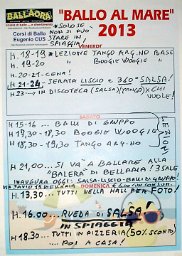 BALLAORA
"BALLO AL MARE"
2013
Corsi di Ballo
Eugenio GUS
*SOLO SE
NON SI PUÒ
STARE IN
SPIAGGIA
VENERDI
H. 18-19 *LEZIONE TANGO ARG.NO BASE
H. 19-20 " BOOGIE WOOGIE "
H. 20-21 CENA!
H. 21-24 SERATA LISCIO E 360° SALSA!
H. 23→ IN DISCOTECA CHI
VUOLE!
H. 15-16 BALLI DI GRUPPO
H. 17,30-18,30 BOOGIE WOOGIE
H. 18,30-19,30 TANGO ARG.NO
LEZIONE
H. 21,00... SI VA A BALLARE ALLA
"BALERA" DI BELLARIA? 3 SALE
INAUGURA OGGI: SALSA-LISCIO-BALLI DI GRUPPO
DOMENICA
H. 13,30... TUTTI NELLA HALL PER FOTO!
H. 16.00 RUEDA DI SALSA!
IN SPIAGGIA
H. 18.30... TUTTI IN PIZZERIA (50% SCONTO)
POI A CASA!